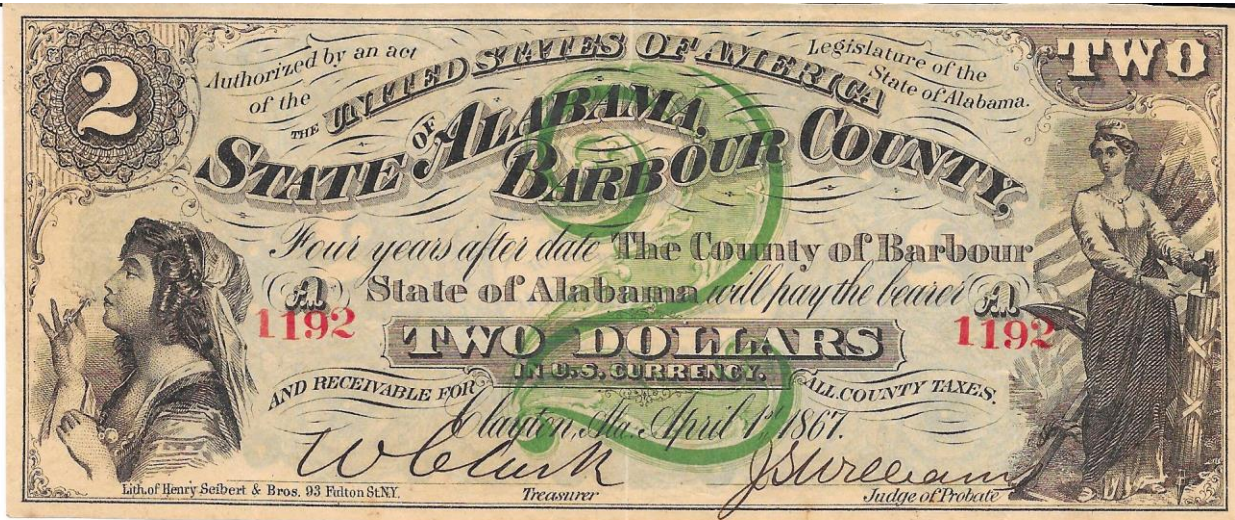 2
TWO
Authorized by an act
of the
Legislature of the
State of Alabama.
THE UNITED STATES OF AMERICA
STATE OF ALABAMA,
BARBOUR COUNTY,
Four years after date The County of Barbour
State of Alabama will pay the bearer
A
1192
A
1192
2
TWO DOLLARS
IN U.S. CURRENCY.
AND RECEIVABLE FOR
ALL COUNTY TAXES.
Clayton, Ala. April 1st, 1867.
W Clark
J S Williams
Lith. of Henry Seibert & Bros. 93 Fulton St N.Y.
Treasurer
Judge of Probate